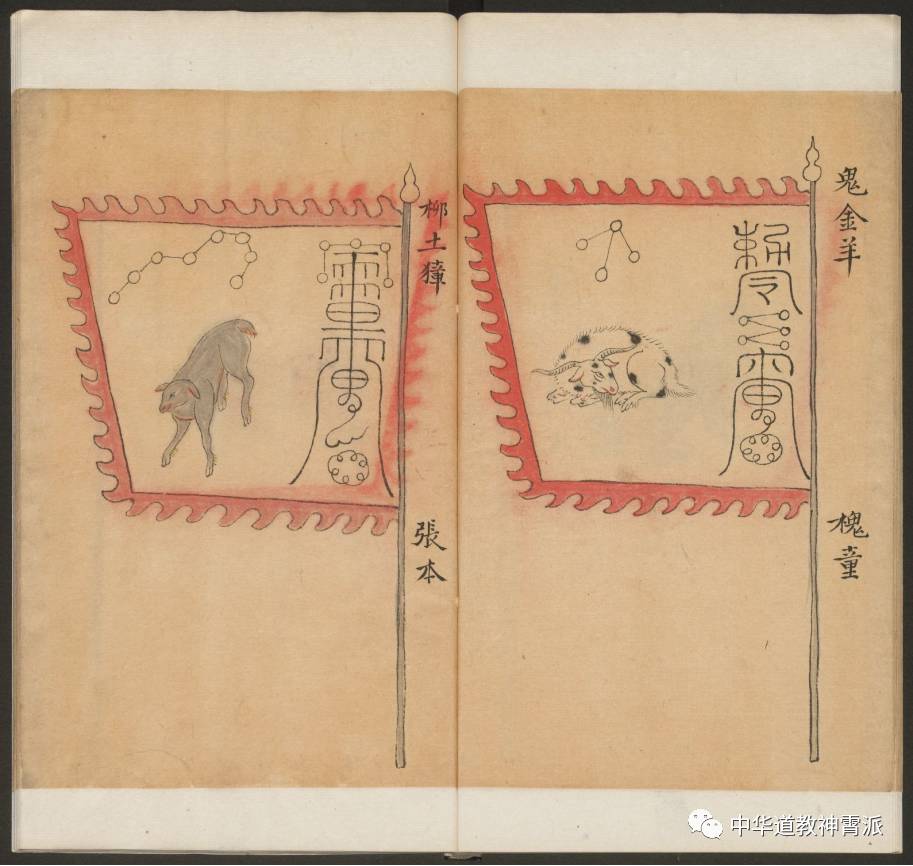 鬼金羊
槐童
柳土獐
張本
中华道教神霄派